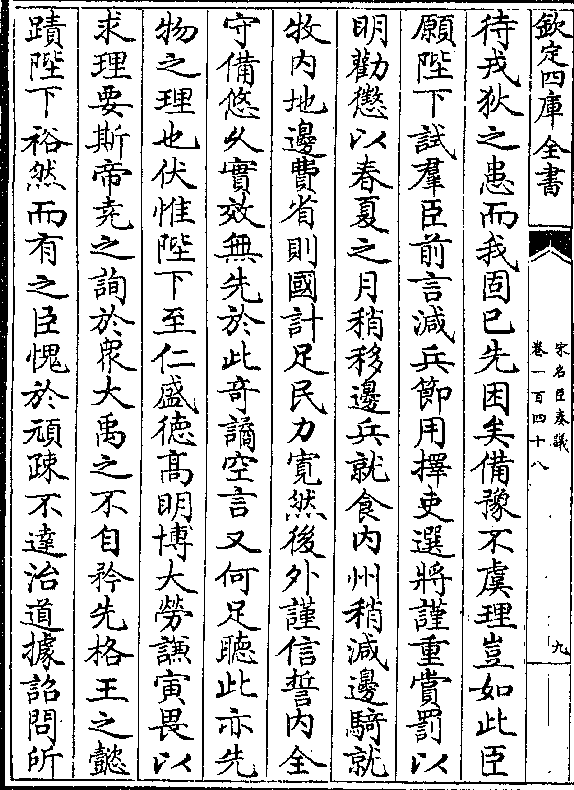 欽定四庫全書
宋名臣奏議
卷一百四十八
九
待戎狄之患而我固已先困矣備豫不虞理豈如此臣
願陛下試羣臣前言減兵節用擇吏選將謹重賞罰以
明勸懲以春夏之月稍移邊兵就食内州稍減邊騎就
牧内地邊費省則國計足民力寛然後外謹信誓内全
守備悠久實效無先於此奇譎空言又何足聽此亦先
物之理也伏惟陛下至仁盛德髙明博大勞謙寅畏以
求理要斯帝堯之詢於衆大禹之不自矜先格王之懿
蹟陛下裕然而有之臣愧於頑疎不達治道據詔問所